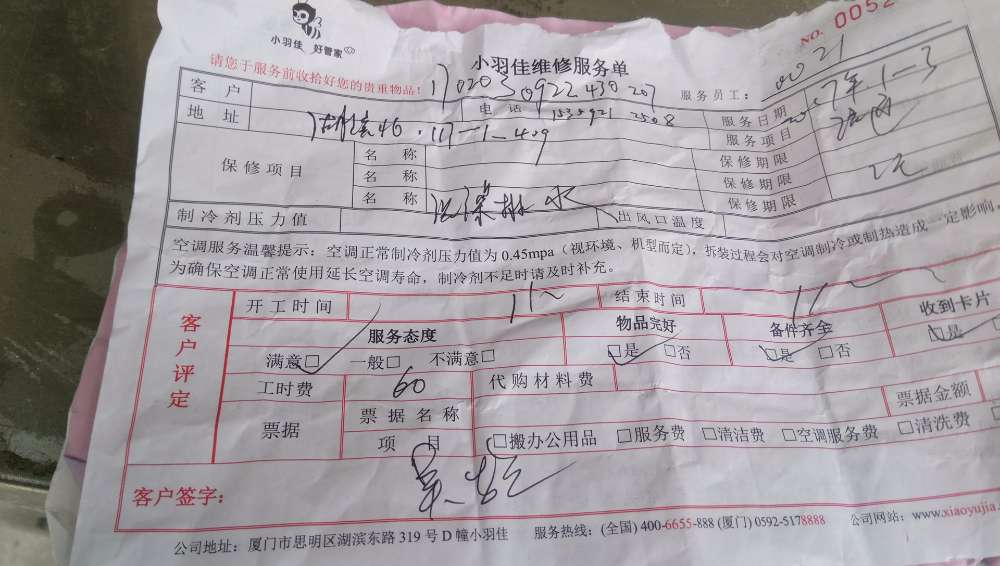 小羽佳 好管家
NO. 0052
请您于服务前收拾好您的贵重物品!
小羽佳维修服务单
服务员工: 0021
客户 17020350922430207
服务日期 2017年1-3
地址
电话
服务项目
117-1-409
保修项目 名称 保修期限
名称 保修期限
名称 保修期限
排水
制冷剂压力值 出风口温度
空调服务温馨提示:空调正常制冷剂压力值为0.45mpa(视环境、机型而定),拆装过程会对空调制冷或制热造成一定影响,
为确保空调正常使用延长空调寿命,制冷剂不足时请及时补充。
客户评定
开工时间 结束时间
服务态度 物品完好 备件齐全 收到卡片
满意□ 一般□ 不满意□ □是 □否 □是 □否 □是
工时费 60 代购材料费
票据 票据名称 票据金额
项目 □搬办公用品 □服务费 □清洁费 □空调服务费 □清洗费
客户签字:
公司地址:厦门市思明区湖滨东路319号D幢小羽佳 服务热线:(全国)400-6655-888(厦门)0592-5178888 公司网站:www.xiaoyujia.